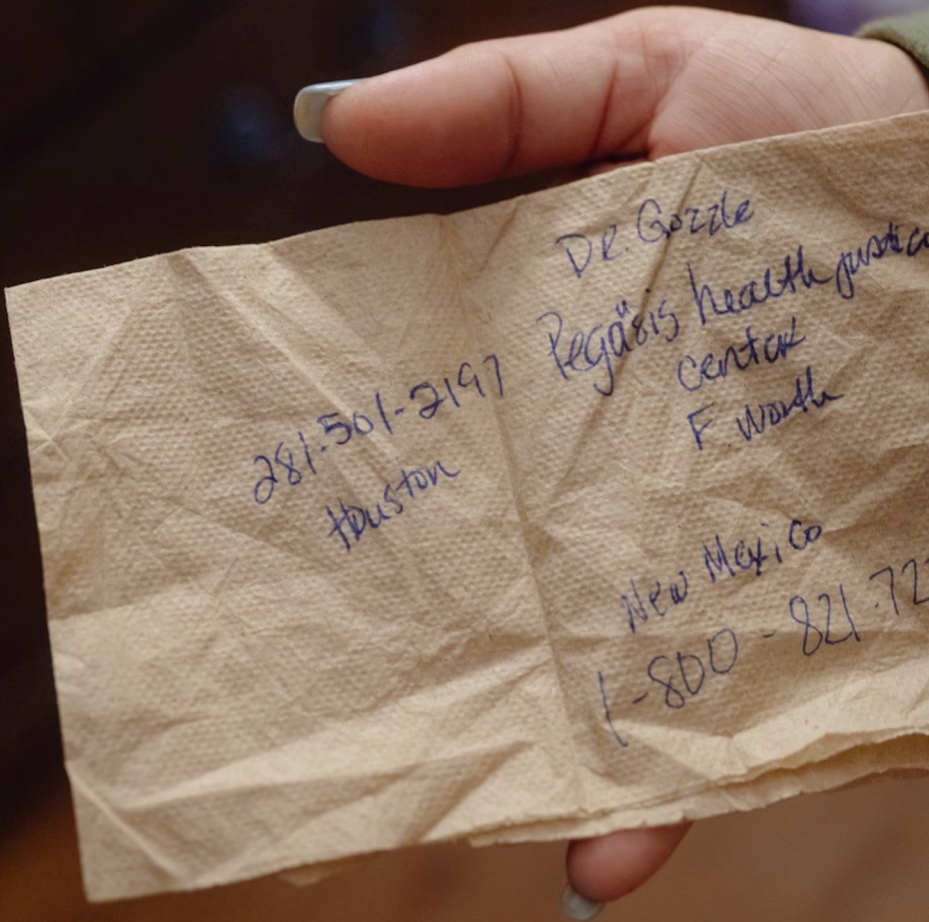 281-501-2197
Houston
Dr. Gozzle
Pegäsis health justice
center
F. Worth
New Mexico
1-800-821-72